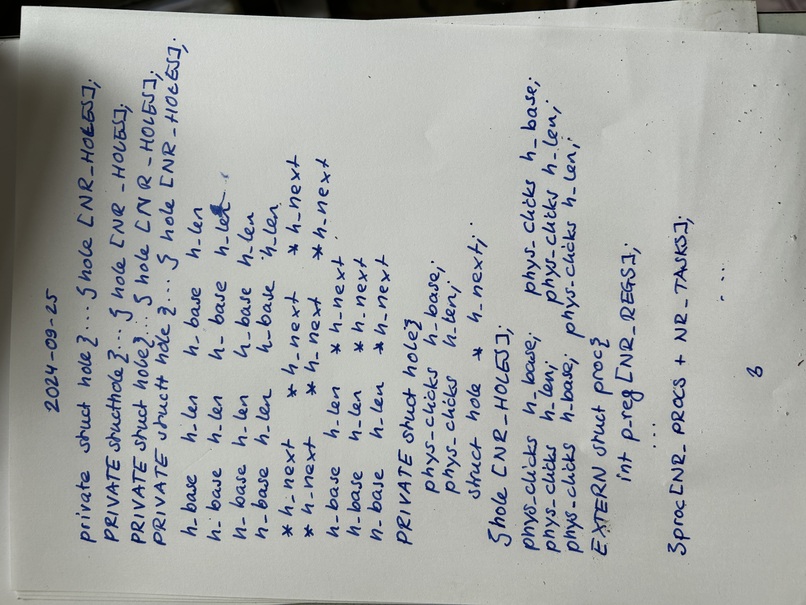 2024-09-25
private struct hole {... } hole [NR_HOLES];
PRIVATE structhole {... } hole [NR_HOLES];
PRIVATE struct hole{... } hole [NR_HOLES];
PRIVATE structt hole {... } hole [NR_HOLES];
h_base h_len h_base h_len
h_base h_len h_base h_len
h_base h_len h_base h_len
h_base h_len h_base h_len
*h_next *h_next *h_next
*h_next *h_next *h_next
h_base h_len *h_next
h_base h_len *h_next
h_base h_len *h_next
PRIVATE struct hole{
phys_clicks h_base;
phys_clicks h_len;
struct hole * h_next;
}hole [NR_HOLES];
phys_clicks h_base; phys_clicks h_base;
phys_clicks h_len; phys_clicks h_len;
phys_clicks h_base; phys_clicks h_len;
EXTERN struct proc{
int p_reg [NR_REGS];
...
}proc[NR_PROCS + NR_TASKS];
...
3